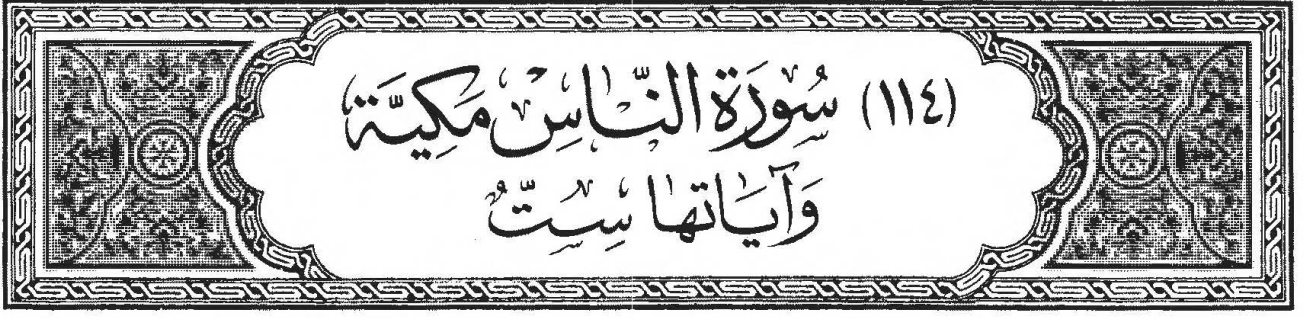 (١١٤) سُورَة النَّاسِ مَكِيَّة
وَآيَاتهَا سِتٌّ